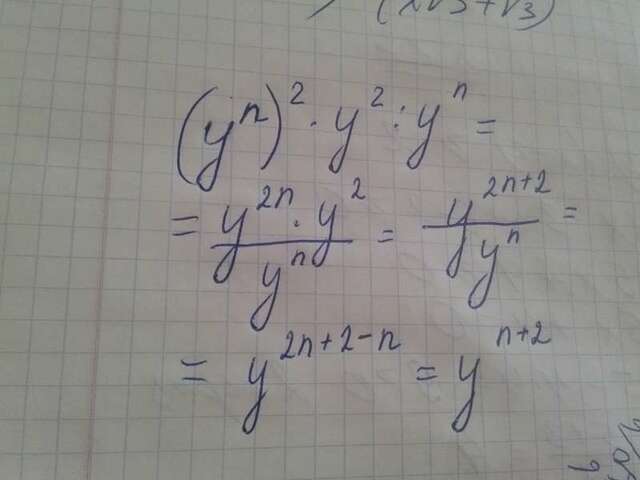 (2√3+√3)
(yⁿ)² · y² : yⁿ =
= y²ⁿ · y² / yⁿ = y²ⁿ⁺² / yⁿ =
= y²ⁿ⁺²⁻ⁿ = yⁿ⁺²